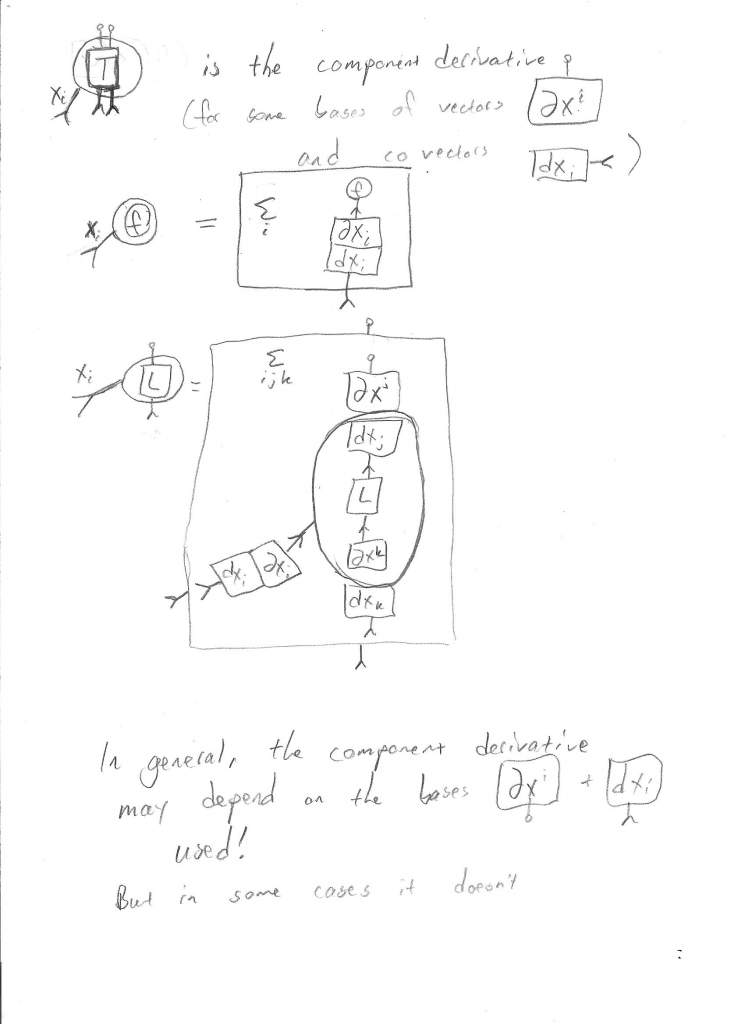 T is the component derivative
xi
(for some bases of vectors ∂xⁱ
and covectors dxi )
xi f = Σ i f
∂xi
dxi
xi L = Σ ijk
∂xʲ
dxj
L
∂xᵏ
dxi ∂xi
dxk
In general, the component derivative
may depend on the bases ∂xⁱ + dxi
used!
But in some cases it doesn't